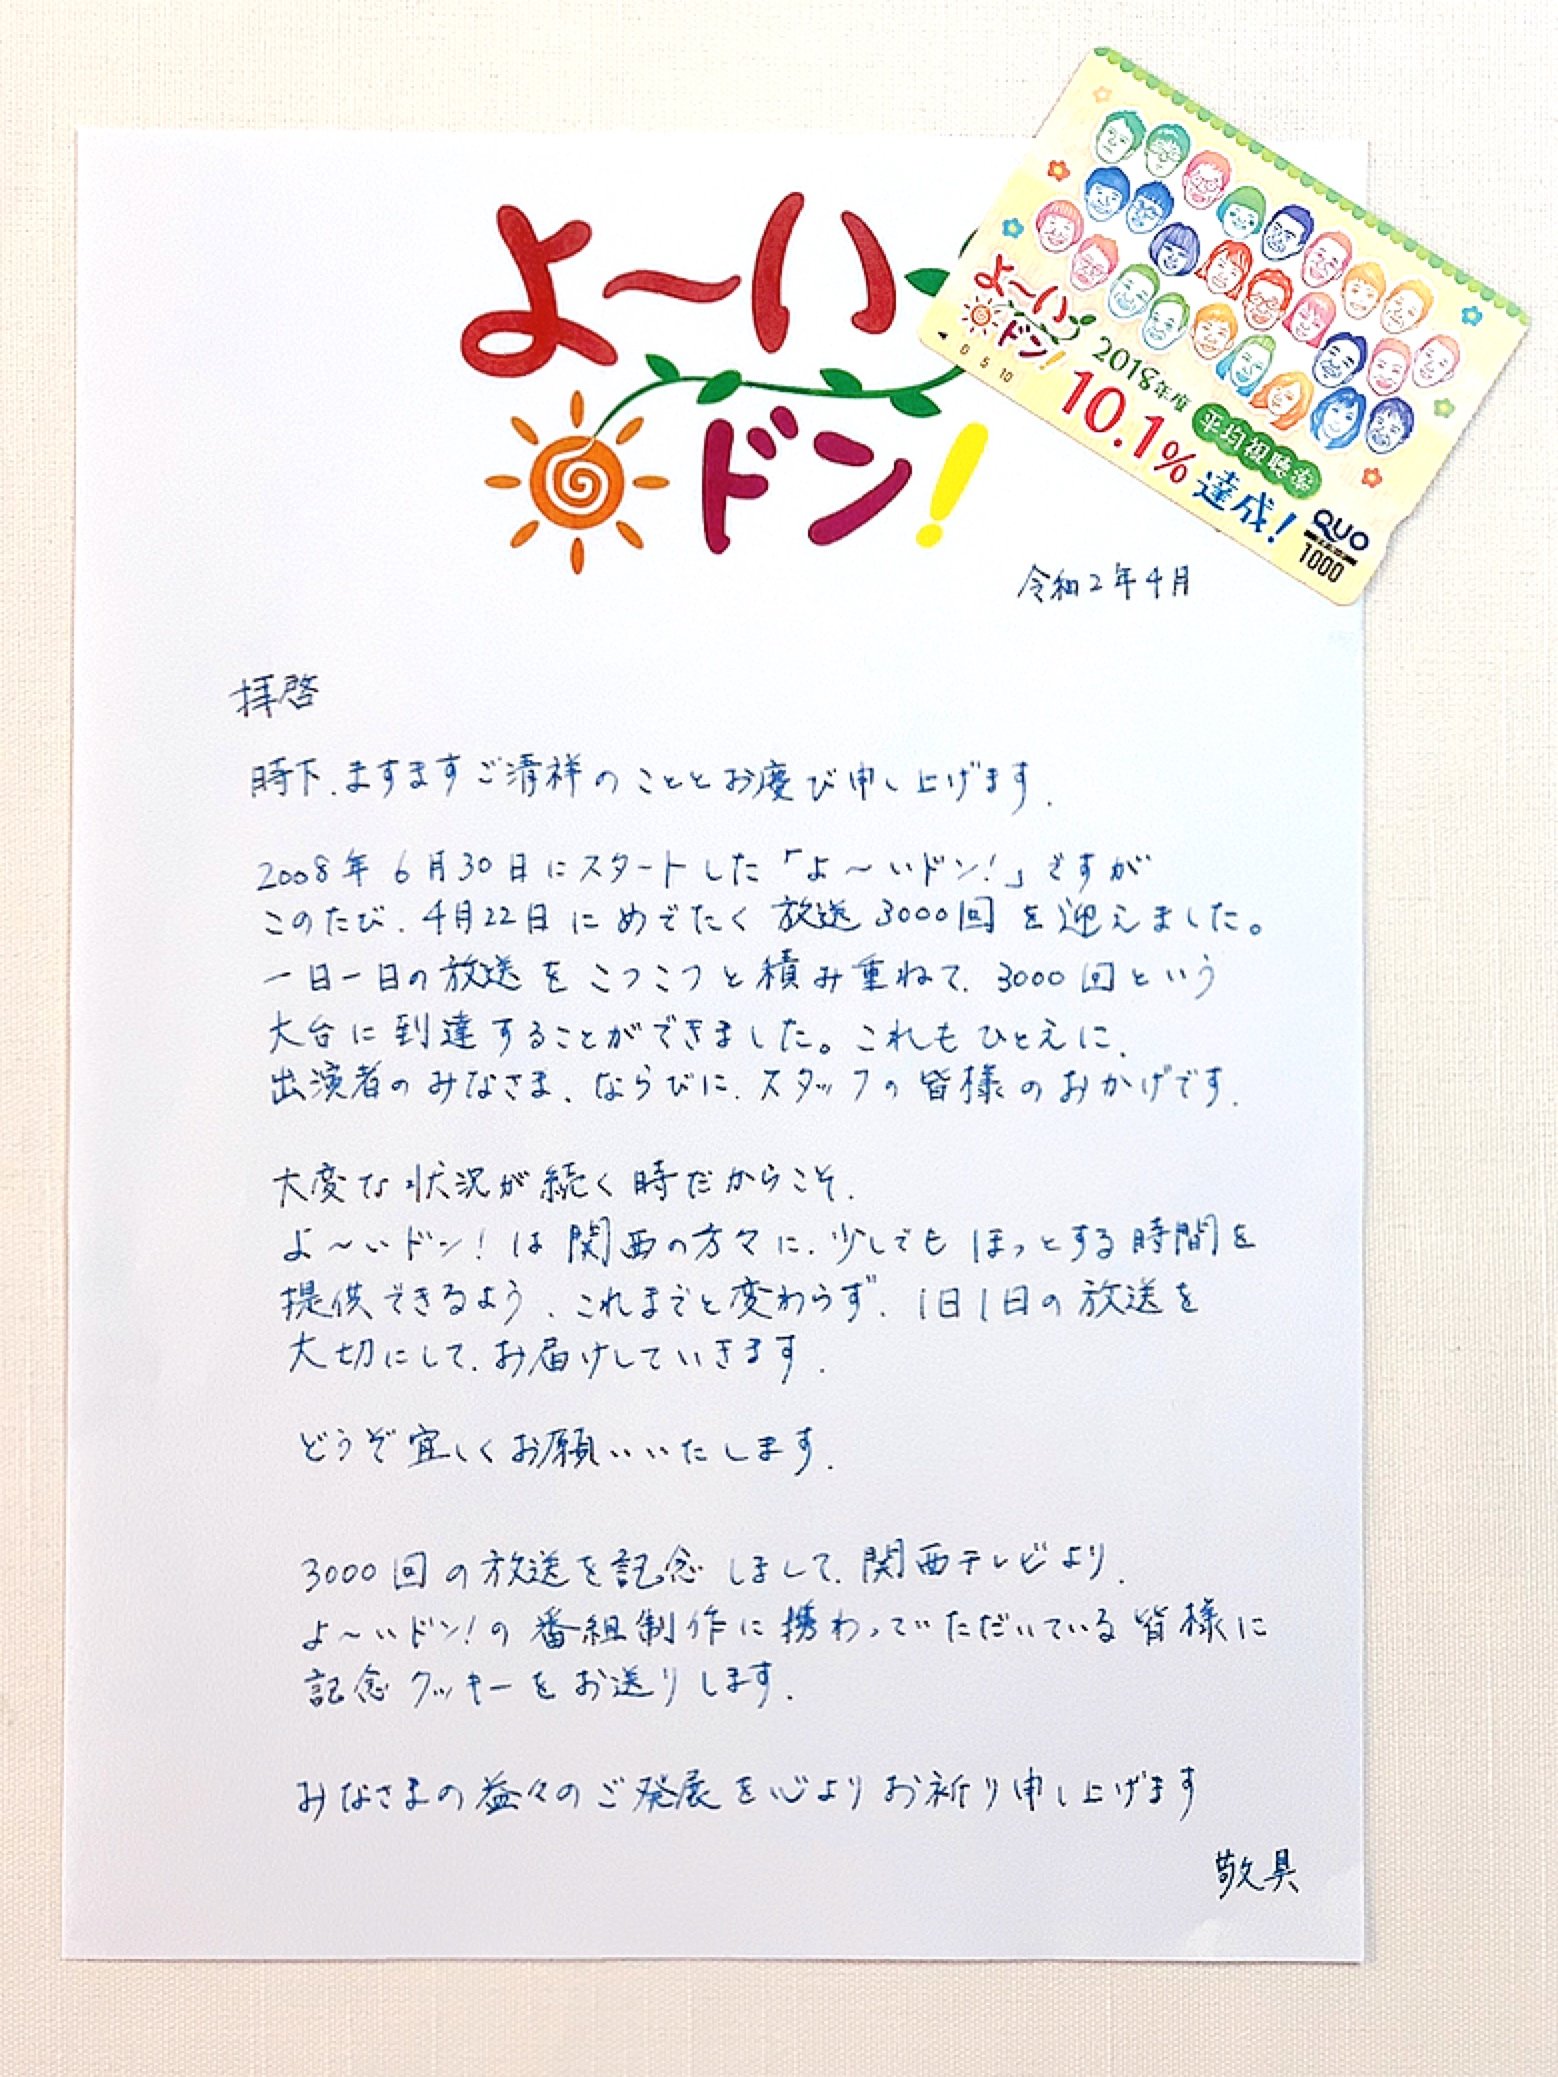 よ～い
ドン!
よ～い
ドン!
2018年度
平均視聴率
10.1%達成!
0 5 10
QUO
1000
令和2年4月
拝啓
時下、ますますご清祥のこととお慶び申し上げます。
2008年6月30日にスタートした「よ～いドン!」ですが
このたび、4月22日にめでたく放送3000回を迎えました。
一日一日の放送をこつこつと積み重ねて、3000回という
大台に到達することができました。これもひとえに、
出演者のみなさま、ならびに、スタッフの皆様のおかげです。
大変な状況が続く時だからこそ、
よ～いドン!は関西の方々に、少しでもほっとする時間を
提供できるよう、これまでと変わらず、1日1日の放送を
大切にして、お届けしていきます。
どうぞ宜しくお願いいたします。
3000回の放送を記念しまして、関西テレビより、
よ～いドン!の番組制作に携わっていただいている皆様に
記念クッキーをお送りします。
みなさまの益々のご発展を心よりお祈り申し上げます
敬具